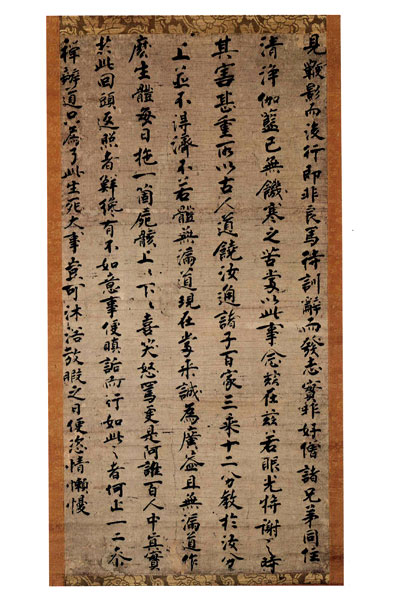 見鞭影而後行即非良馬待訓辭而發志實非好僧諸兄弟同住
清淨伽藍已無饑寒之苦當以此事念茲在茲若眼光將謝之時
其害甚重所以古人道饒汝通諸子百家三乘十二分教於汝分
上並不得濟不若體無漏道現在當來誠為廣益且無漏道作
麼生體每日拖一箇屍骸上〻下〻喜笑怒罵更是阿誰百人中真實
於此回頭返照者鮮縱有不如意事便瞋詬而行如此之者何止一二參
禪辨道只為了此生死大事豈可沐浴放暇之日便恣情懶慢